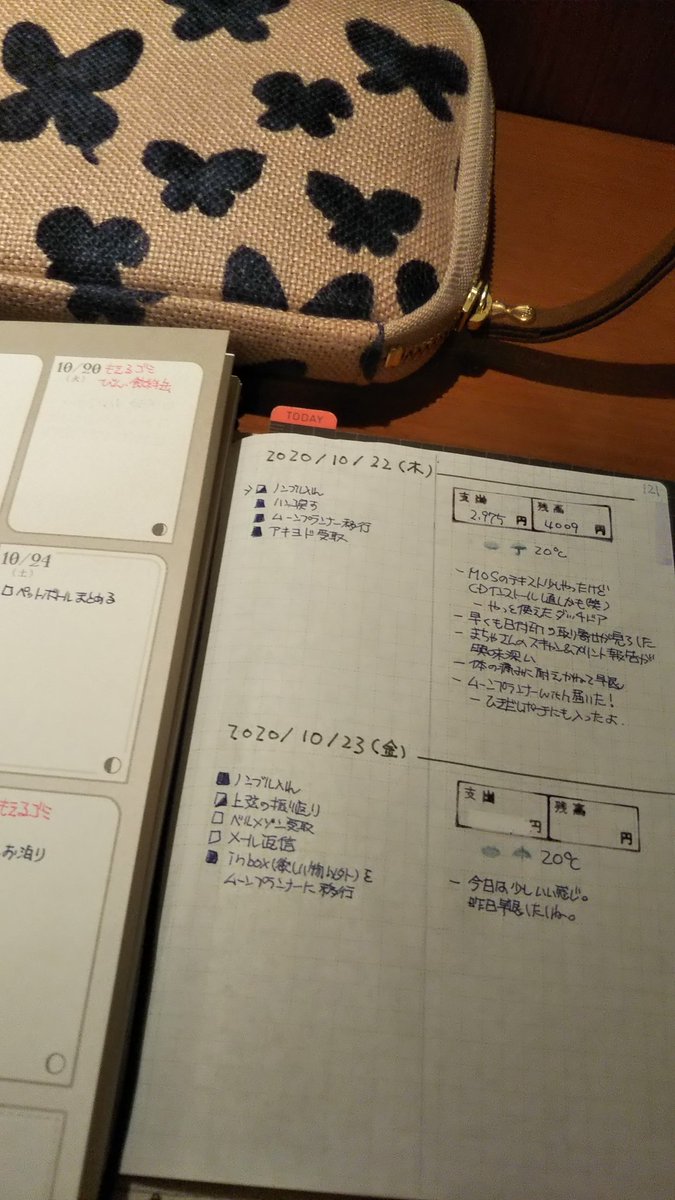 10/20
(火)
もえるゴミ
10/24
(土)
ペットボトルまとめる
もえるゴミ
お泊り
TODAY
121
2020/10/22(木)
ノンブル入れ
ハンコ戻す
ムーンプランナー移行
アキヨド受取
支出
2,975 円
残高
4009 円
20℃
- MOSのテキスト少しやったけど
CDインストールし直しかも(笑)
- やっと使えたダッチドア
- 早くも日付印の取り寄せが完了した
- まちゃさんのスキャン&プリント報告が
興味深い
- 体の痛みに耐えかねて早退
- ムーンプランナーんたん届いた!
2020/10/23(金)
ノンブル入れ
上弦の振り返り
ベルメゾン受取
メール返信
inbox(欲しい物以外)を
ムーンプランナーに移行
支出
円
残高
円
20℃
- 今日は少しいい感じ。
昨日早退したしね〜。